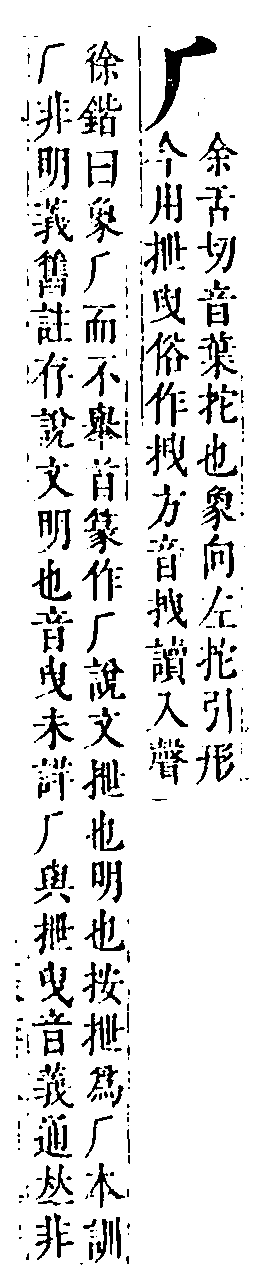 𠂆
余舌切音葉拕也象向左拕引形
今用抴曳俗作拽方音拽讀入聲
徐鍇曰象𠂆而不舉首篆作𠂆說文抴也明也按抴爲𠂆本訓
𠂆非明義舊註存說文明也音曳未詳𠂆與抴曳音義通𠀤非